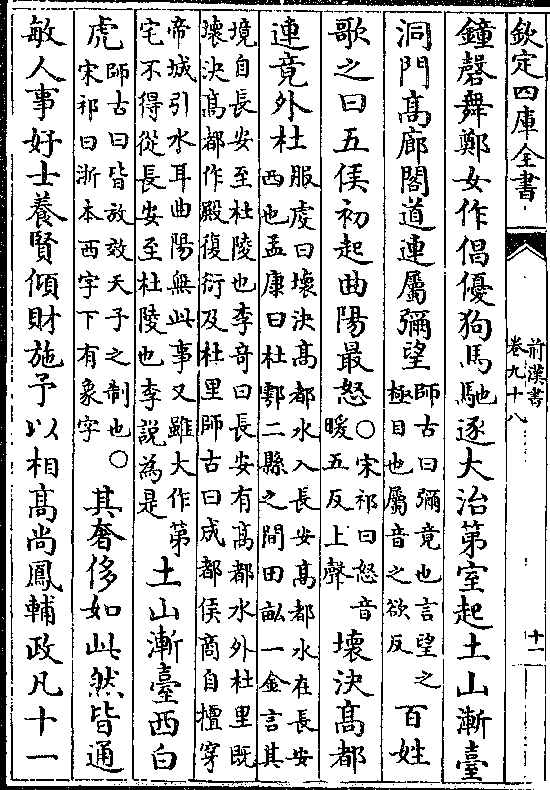 欽定四庫全書
前漢書
卷九十八
十一
鐘磬舞鄭女作倡優狗馬馳逐大治第室起土山漸臺
洞門髙廊閣道連屬彌望
師古曰彌竟也言望之
極目也屬音之欲反
百姓
歌之曰五侯初起曲陽最怒
○宋祁曰怒音
暖五反上聲
壞決髙都
連竟外杜
服䖍曰壞決髙都水入長安髙都水在長安
西也孟康曰杜鄠二縣之間田畝一金言其
境自長安至杜陵也李竒曰長安有髙都水外杜里既
壞決髙都作殿復衍及杜里師古曰成都侯商自擅穿
帝城引水耳曲陽無此事又雖大作第
宅不得從長安至杜陵也李說為是
土山漸臺西白
虎
師古曰皆放效天子之制也○
宋祁曰浙本西字下有象字
其奢侈如此然皆通
敏人事好士養賢傾財施予以相髙尚鳳輔政凡十一